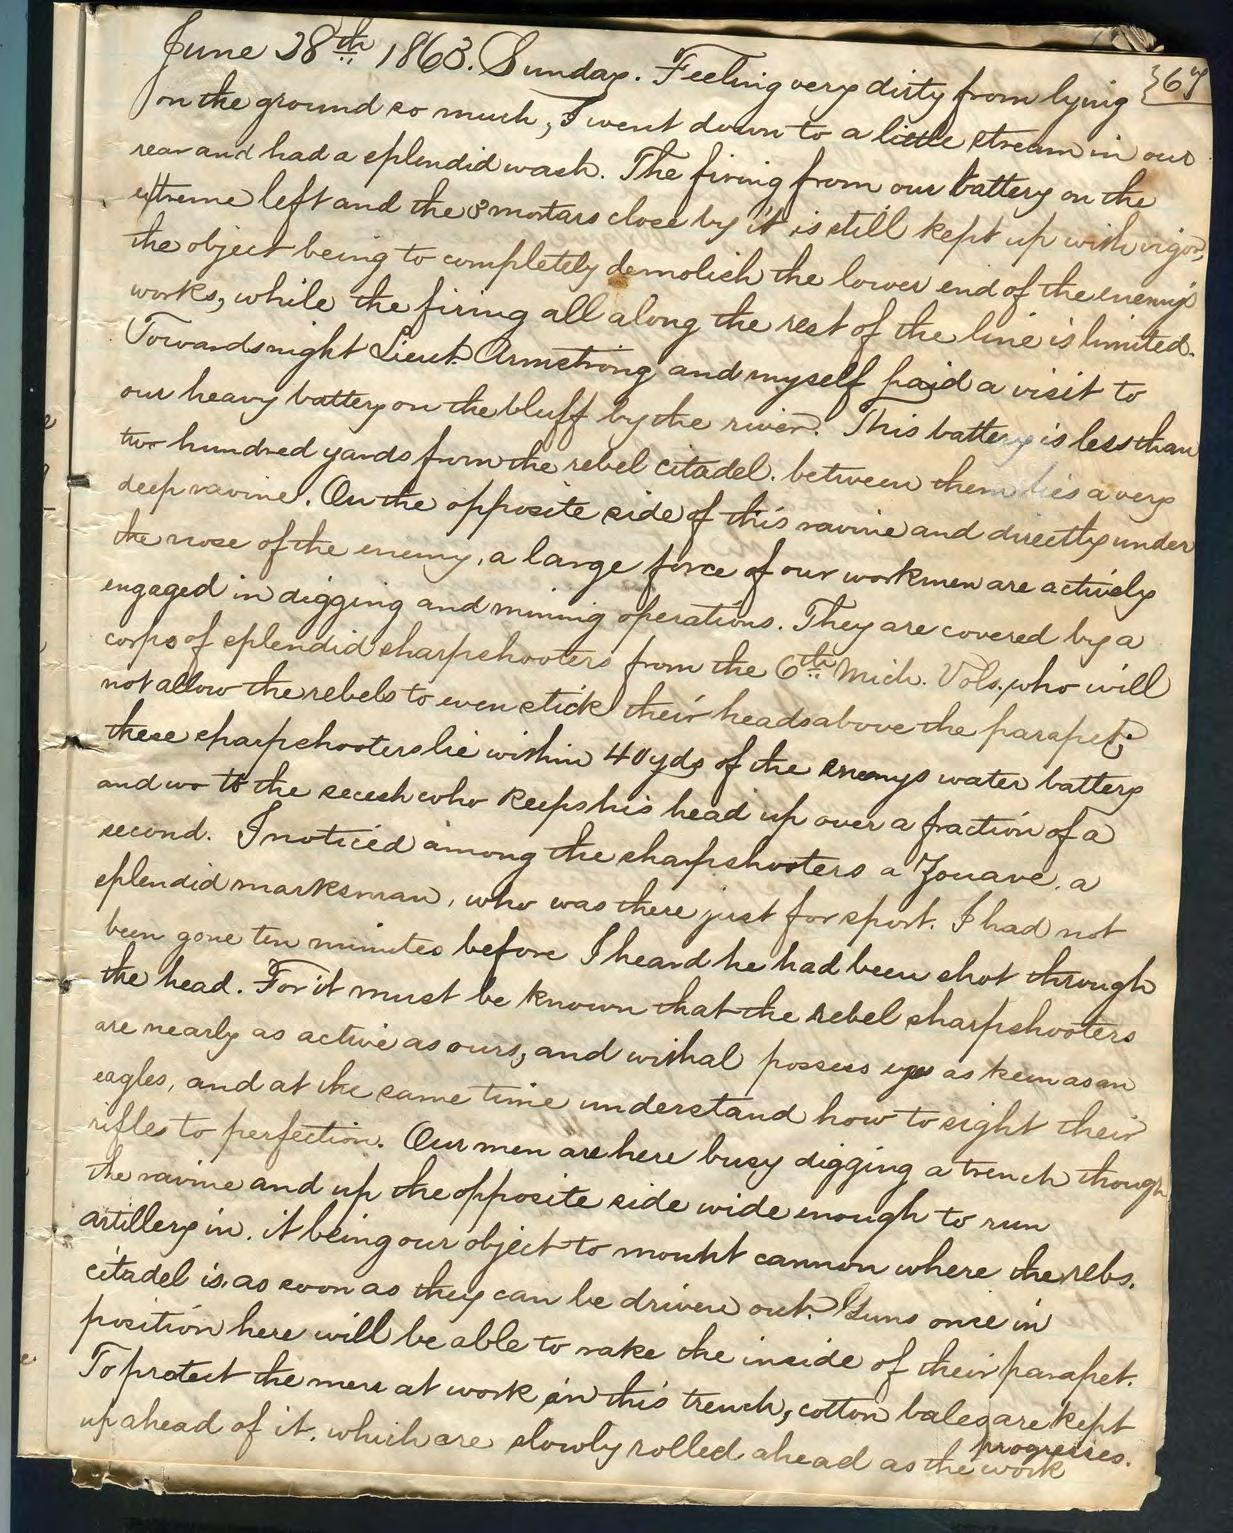 June 28th 1863. Sunday. Feeling very dirty from lying {67
on the ground so much, I went down to a little stream in our
rear and had a splendid wash. The firing from our battery on the
extreme left and the 8 mortars close by it is still kept up with vigor,
the object being to completely demolish the lower end of the enemy's
works, while the firing all along the rest of the line is limited.
Towards night Lieut. Armstrong and myself paid a visit to
our heavy battery on the bluff by the river. This battery is less than
two hundred yards from the rebel citadel. between them lies a very
deep ravine. On the opposite side of this ravine and directly under
the nose of the enemy, a large force of our workmen are actively
engaged in digging and mining operations. They are covered by a
corps of splendid sharpshooters from the 6th Mich. Vols. who will
not allow the rebels to even stick their heads above the parapet;
these sharpshooters lie within 40 yds of the enemys water battery
and wo to the secesh who keeps his head up over a fraction of a
second. I noticed among the sharpshooters a Zouave, a
splendid marksman, who was there just for sport. I had not
been gone ten minutes before I heard he had been shot through
the head. For it must be known that the rebel sharpshooters
are nearly as active as ours, and withal possess eyes as keen as an
eagles, and at the same time understand how to sight their
rifles to perfection. Our men are here busy digging a trench though
the ravine and up the opposite side wide enough to run
artillery in. it being our object to mount cannon where the rebs.
citadel is as soon as they can be driven out. Guns once in
position here will be able to rake the inside of their parapet.
To protect the men at work in this trench, cotton bales are kept
up ahead of it. which are slowly rolled ahead as the work
progresses.